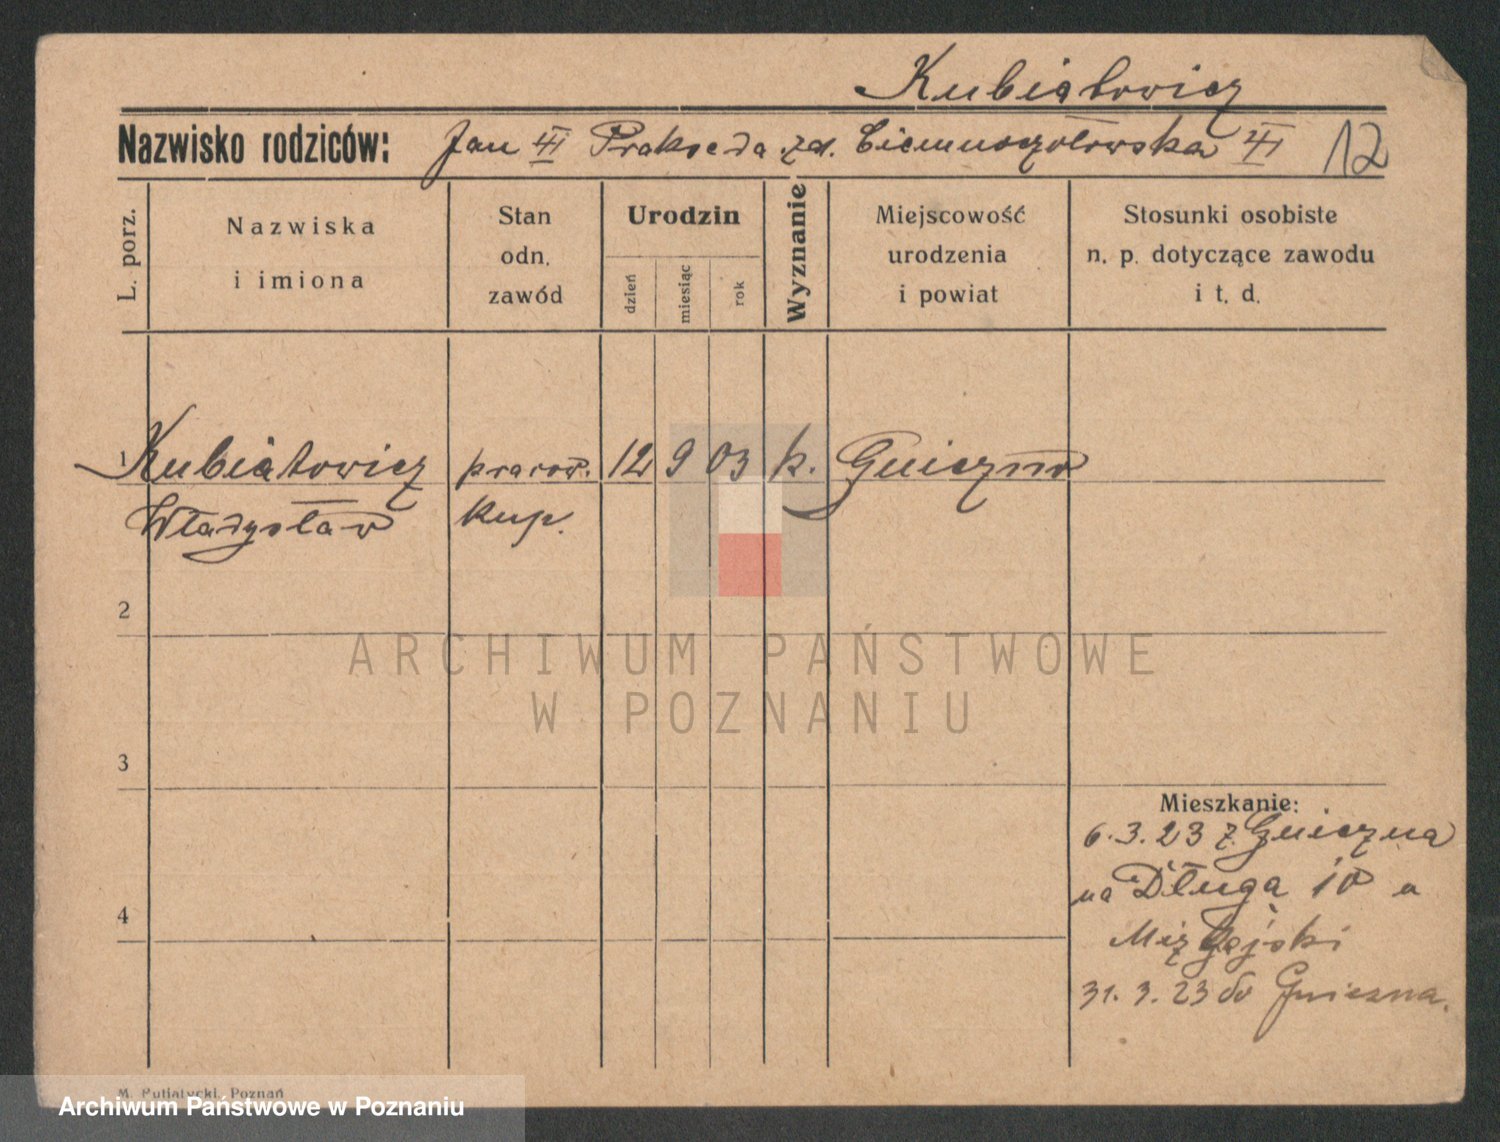 Kubiatowicz
Nazwisko rodziców: Jan Prakseda zd. 12
L. porz.
Nazwiska i imiona
Stan odn. zawód
Urodzin
dzień
miesiąc
rok
Wyznanie
Miejscowość urodzenia i powiat
Stosunki osobiste n. p. dotyczące zawodu i t. d.
1 Kubiatowicz pracow. 12 9 03 k. Gniezno
Władysław kup.
2
ARCHIWUM PAŃSTWOWE
W POZNANIU
3
Mieszkanie:
6.3.23 z Gniezna
na Długa 10 u
4
31.3.23 do Gniezna.
M. Putiatycki, Poznań
Archiwum Państwowe w Poznaniu